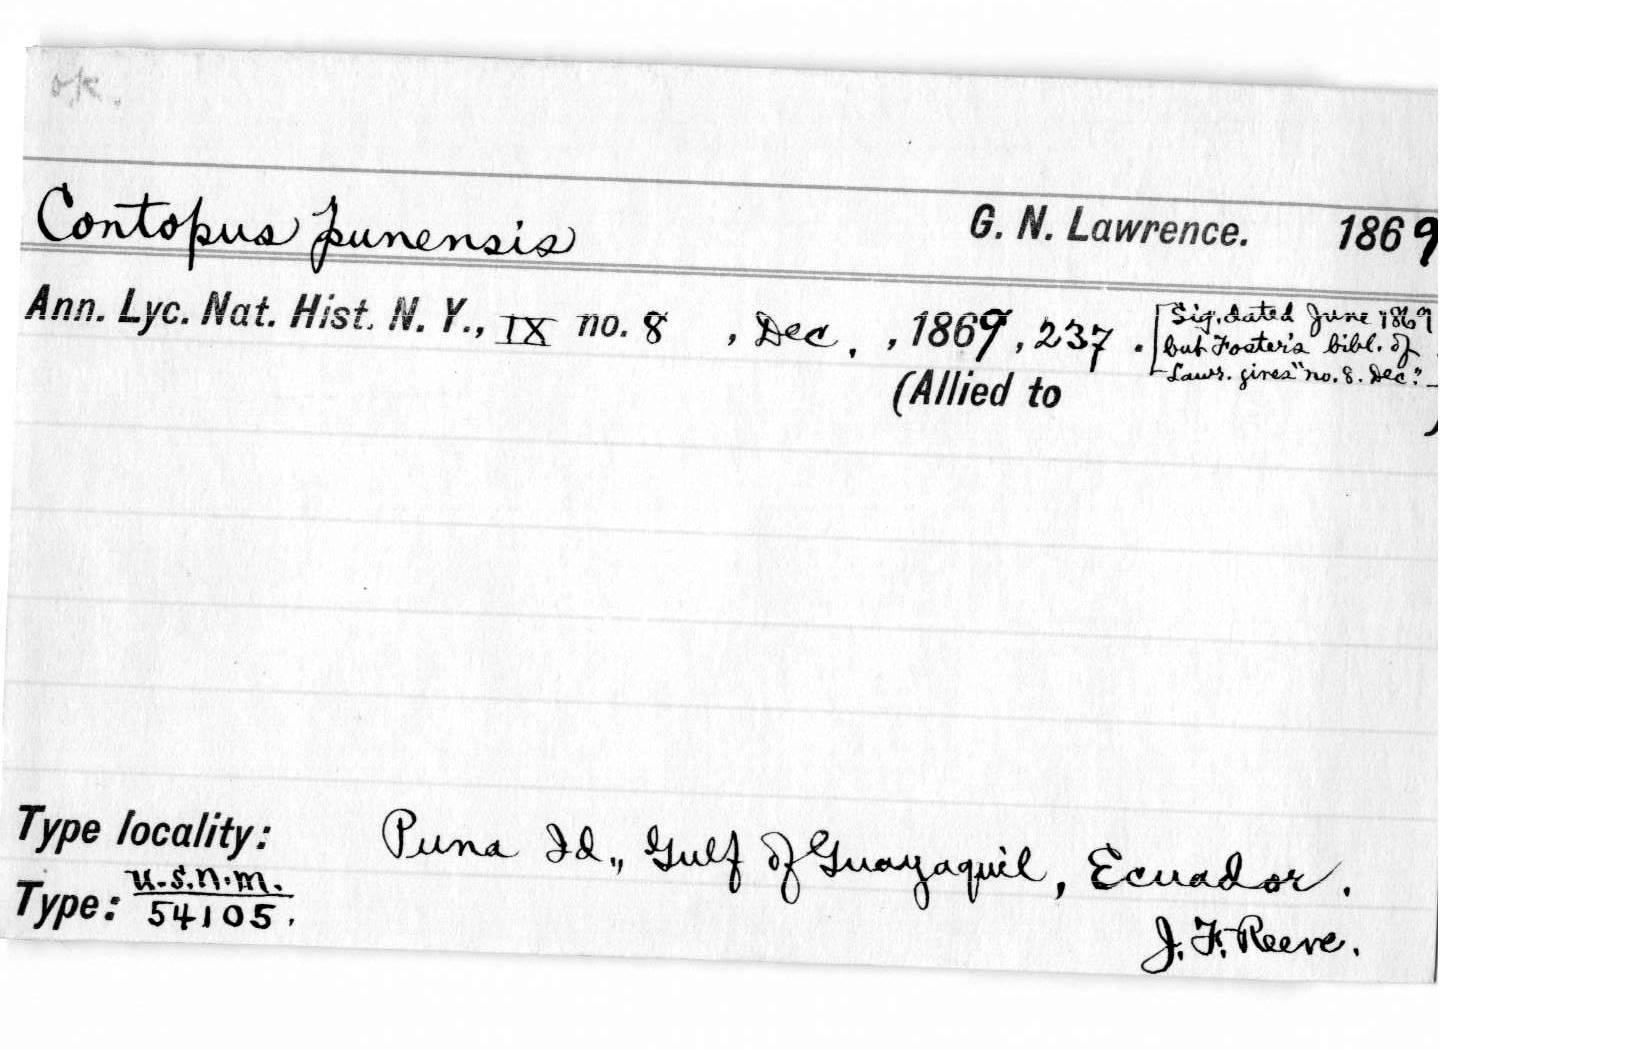 o.k.
Contopus punensis G. N. Lawrence. 1869
Ann. Lyc. Nat. Hist. N. Y., IX no. 8 , Dec. , 1869, 237. [Sig. dated June 1869
but Foster's bibl. of
Lawr. gives "no. 8. Dec."
(Allied to )
Type locality: Puna Id., Gulf of Guayaquil, Ecuador.
Type: U.S.N.M.
54105.
J. F. Reeve.